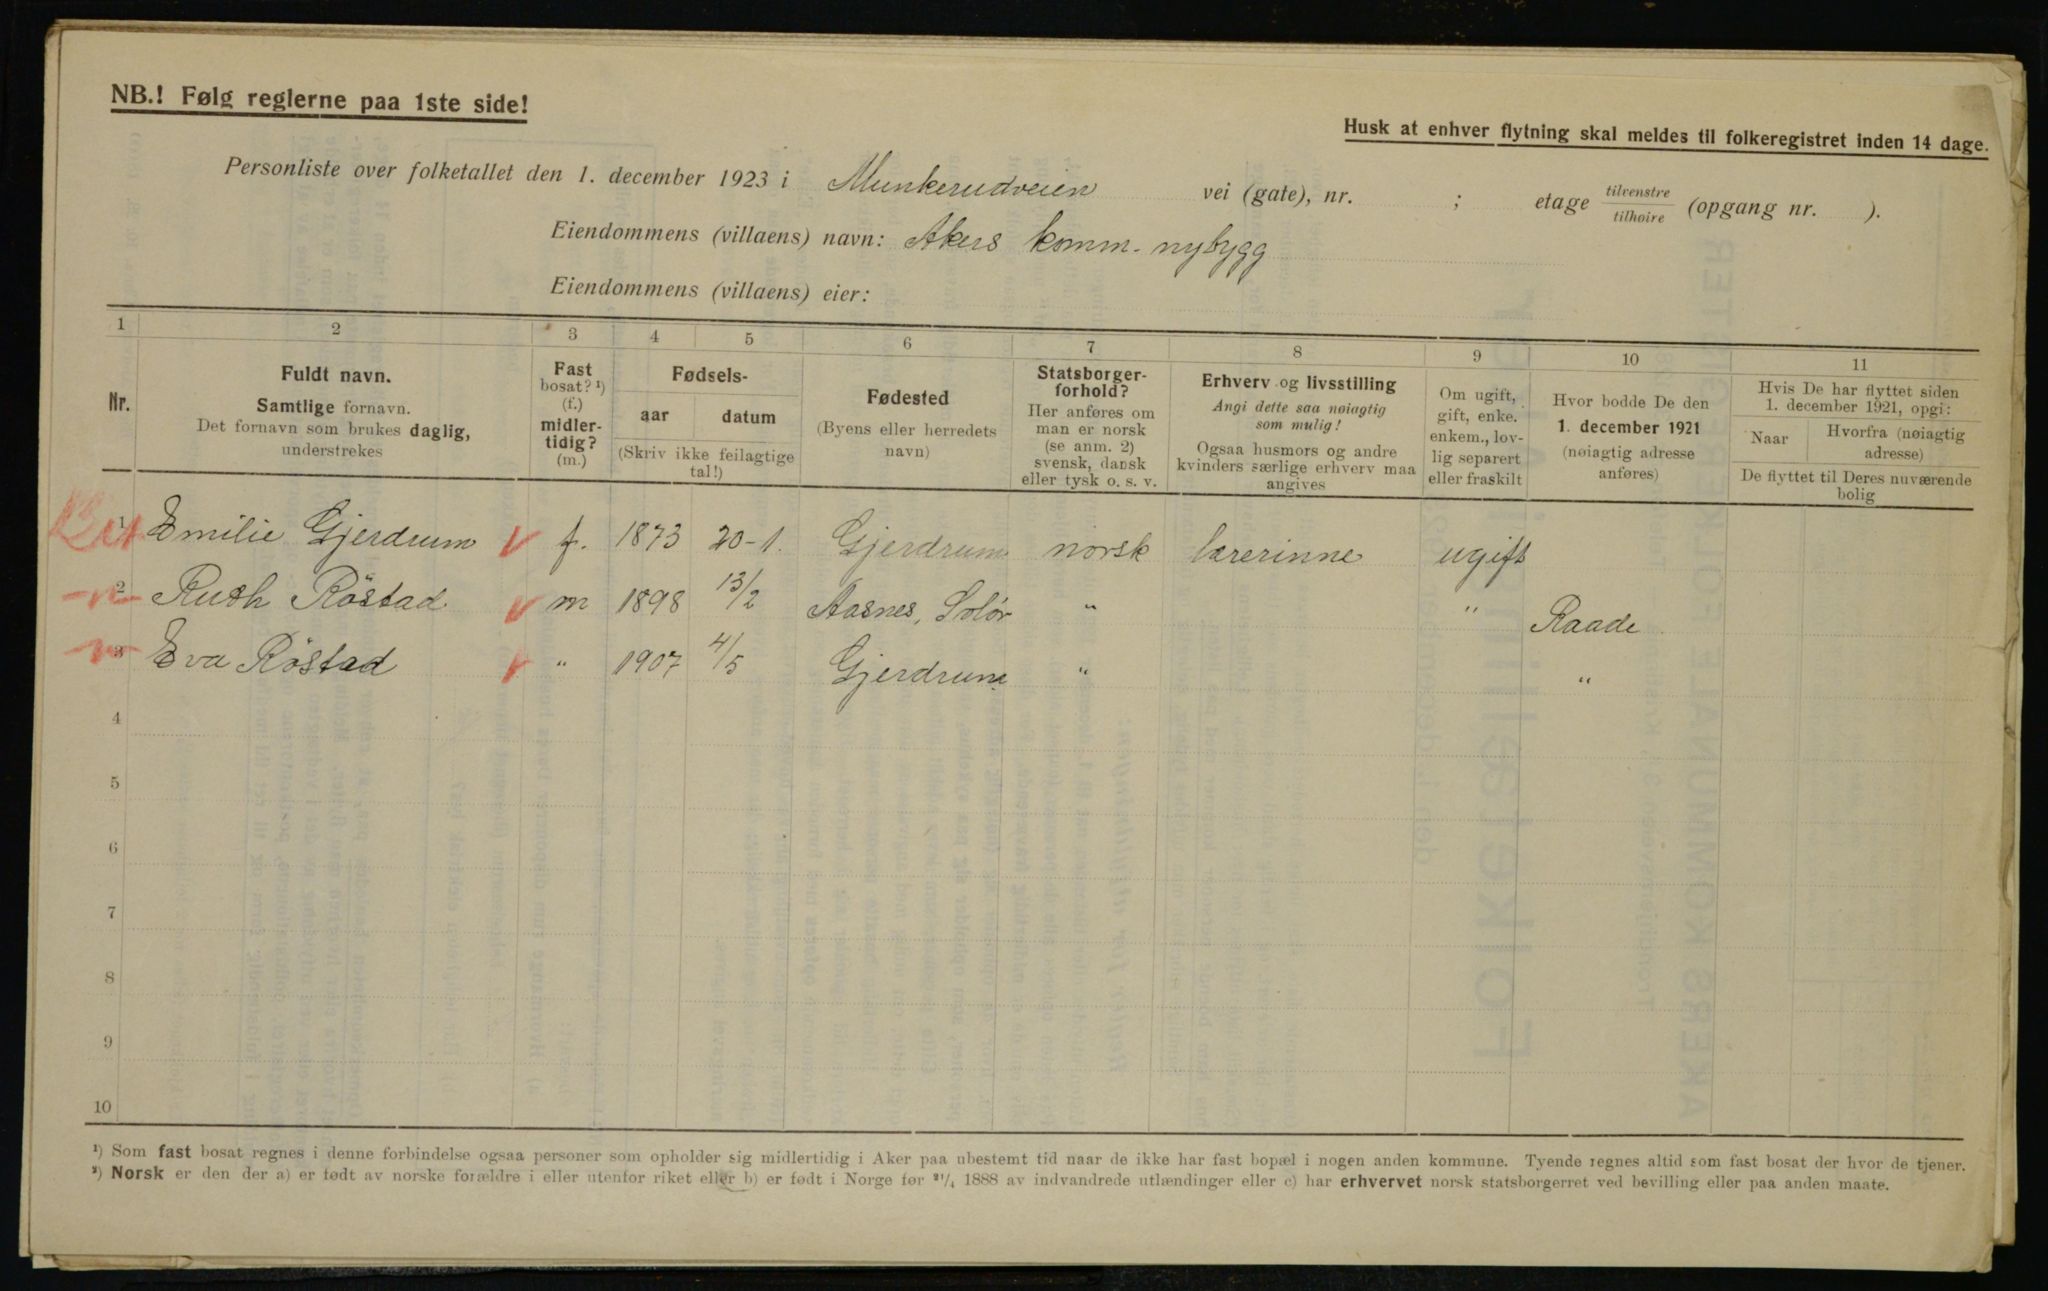 NB.! Følg reglerne paa 1ste side!
Husk at enhver flytning skal meldes til folkeregistret inden 14 dage.
Personliste over folketallet den 1. december 1923 i Munkerudveien vei (gate), nr. ; etage tilvenstre/tilhøire (opgang nr. ).
Eiendommens (villaens) navn: Akers komm. nybygg
Eiendommens (villaens) eier:
1 2 3 4 5 6 7 8 9 10 11
Nr.
Fuldt navn.
Samtlige fornavn.
Det fornavn som brukes daglig,
understrekes
Fast
bosat? ¹)
(f.)
midler-
tidig?
(m.)
Fødsels-
aar datum
(Skriv ikke feilagtige
tal!)
Fødested
(Byens eller herredets
navn)
Statsborger-
forhold?
Her anføres om
man er norsk
(se anm. 2)
svensk, dansk
eller tysk o. s. v.
Erhverv og livsstilling
Angi dette saa nøiagtig
som mulig!
Ogsaa husmors og andre
kvinders særlige erhverv maa
angives
Om ugift,
gift, enke.
enkem., lov-
lig separert
eller fraskilt
Hvor bodde De den
1. december 1921
(nøiagtig adresse
anføres)
Hvis De har flyttet siden
1. december 1921, opgi:
Naar
Hvorfra (nøiagtig
adresse)
De flyttet til Deres nuværende
bolig
1 Emilie Gjerdrum f. 1873 20-1. Gjerdrum norsk lærerinne ugift
2 Ruth Röstad m 1898 13/2 Aasnes, Solör " " Raade
3 Eva Röstad " 1907 4/5 Gjerdrum " "
4
5
6
7
8
9
10
¹) Som fast bosat regnes i denne forbindelse ogsaa personer som opholder sig midlertidig i Aker paa ubestemt tid naar de ikke har fast bopæl i nogen anden kommune. Tyende regnes altid som fast bosat der hvor de tjener.
²) Norsk er den der a) er født av norske forældre i eller utenfor riket eller b) er født i Norge før ²¹/₄ 1888 av indvandrede utlændinger eller c) har erhvervet norsk statsborgerret ved bevilling eller paa anden maate.